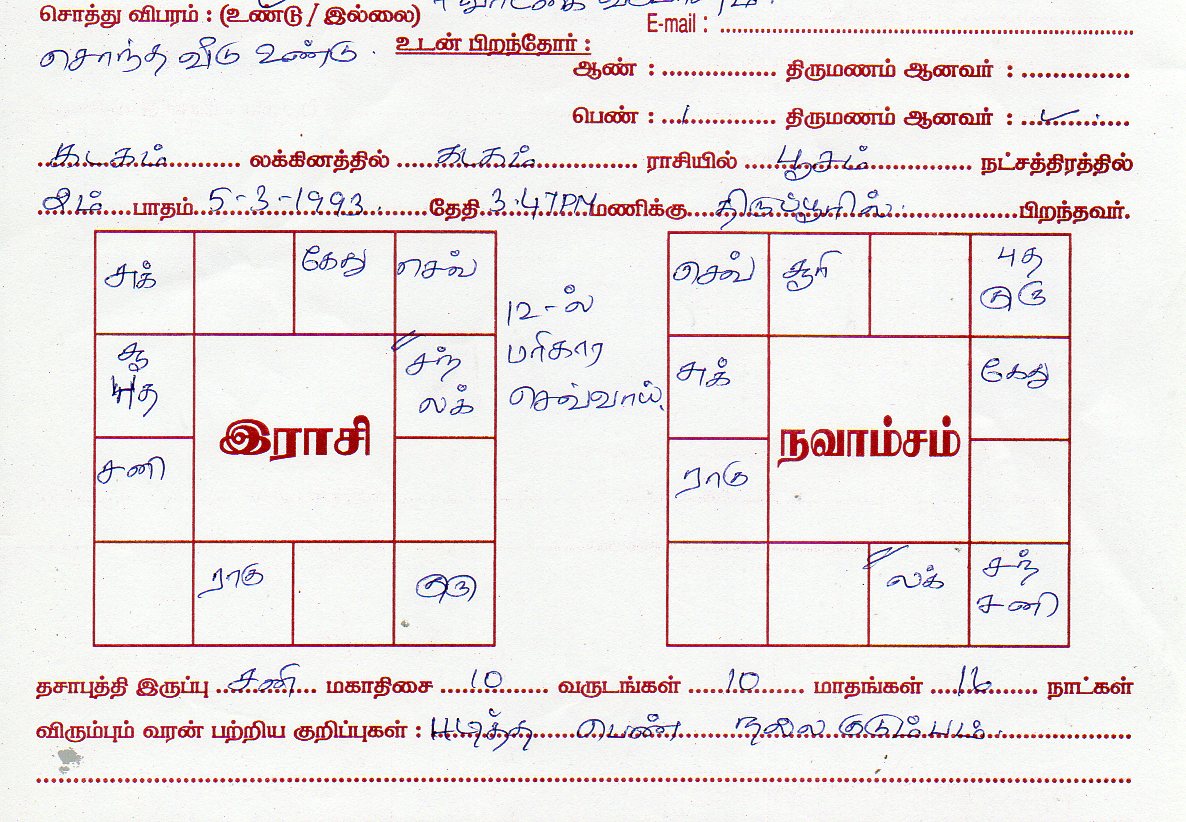 சொத்து விபரம் : (உண்டு / இல்லை)
E-mail : ..........
சொந்த வீடு உண்டு.
உடன் பிறந்தோர் :
ஆண் : .......... திருமணம் ஆனவர் : ..........
பெண் : ..1.. திருமணம் ஆனவர் : ..✓..
கடகம் லக்கினத்தில் கடகம் ராசியில் பூசம் நட்சத்திரத்தில்
2ம் பாதம் 5-3-1993 தேதி 3.47PM மணிக்கு திருப்பூரில் பிறந்தவர்.
சுக் கேது செவ்
சூ புத
சந் லக்
சனி
இராசி
ராகு குரு
12-ல் பரிகார செவ்வாய்.
செவ் சூரி புத குரு
சுக் கேது
ராகு
நவாம்சம்
லக் சந் சனி
தசாபுத்தி இருப்பு சனி மகாதிசை 10 வருடங்கள் 10 மாதங்கள் 16 நாட்கள்
விரும்பும் வரன் பற்றிய குறிப்புகள் : படித்த பெண் நல்ல குடும்பம்.